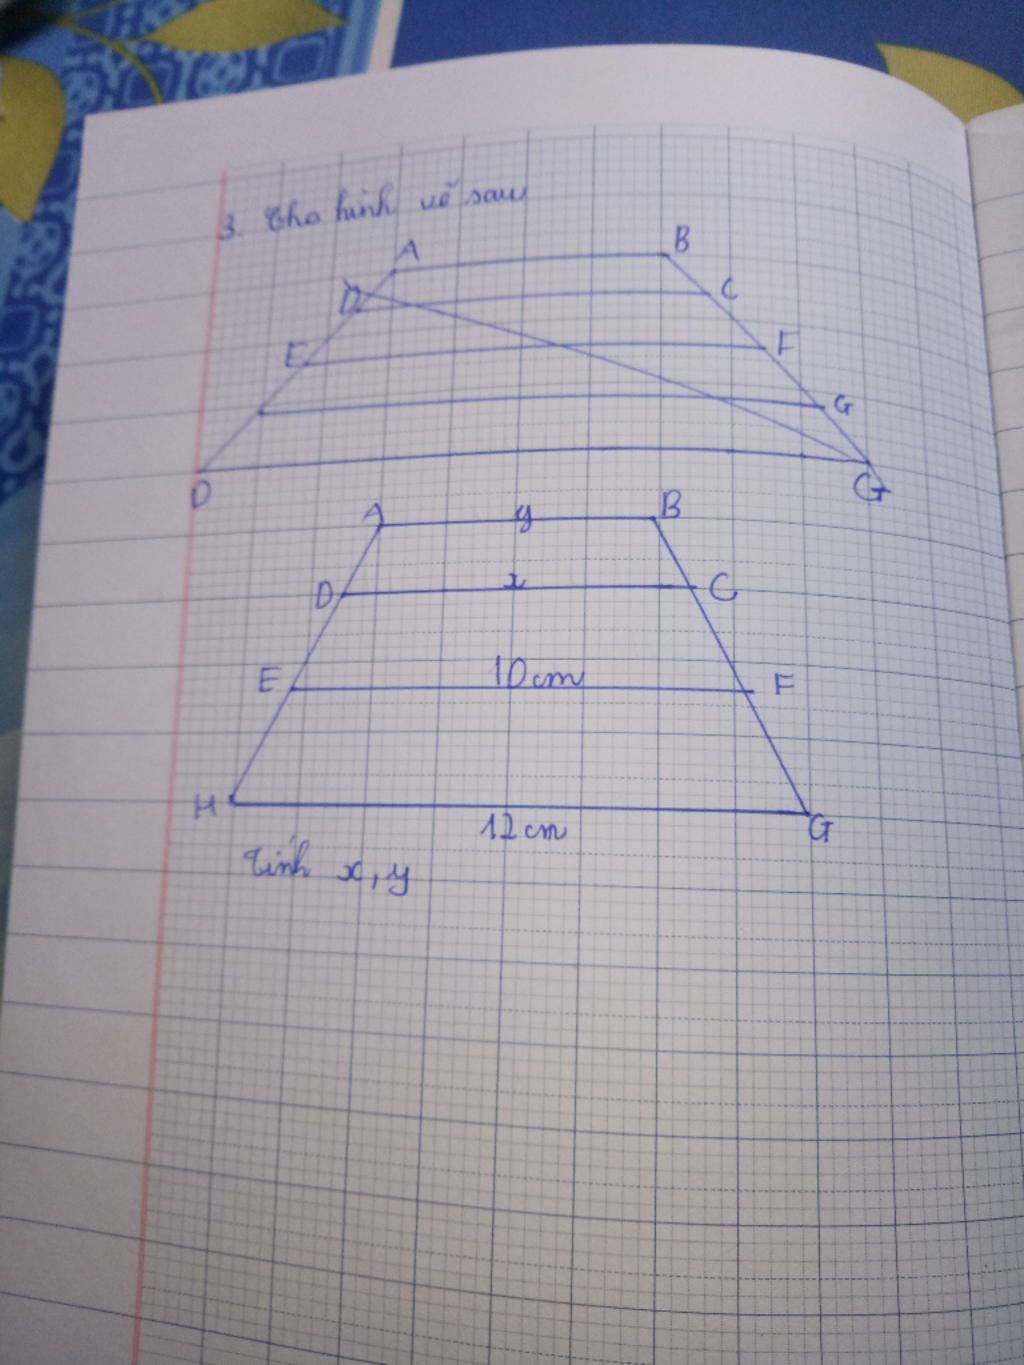 3. Cho hình vẽ sau
A B
D C
E F
G
D G
A y B
D x C
E 10cm F
H 12cm G
Tính x, y